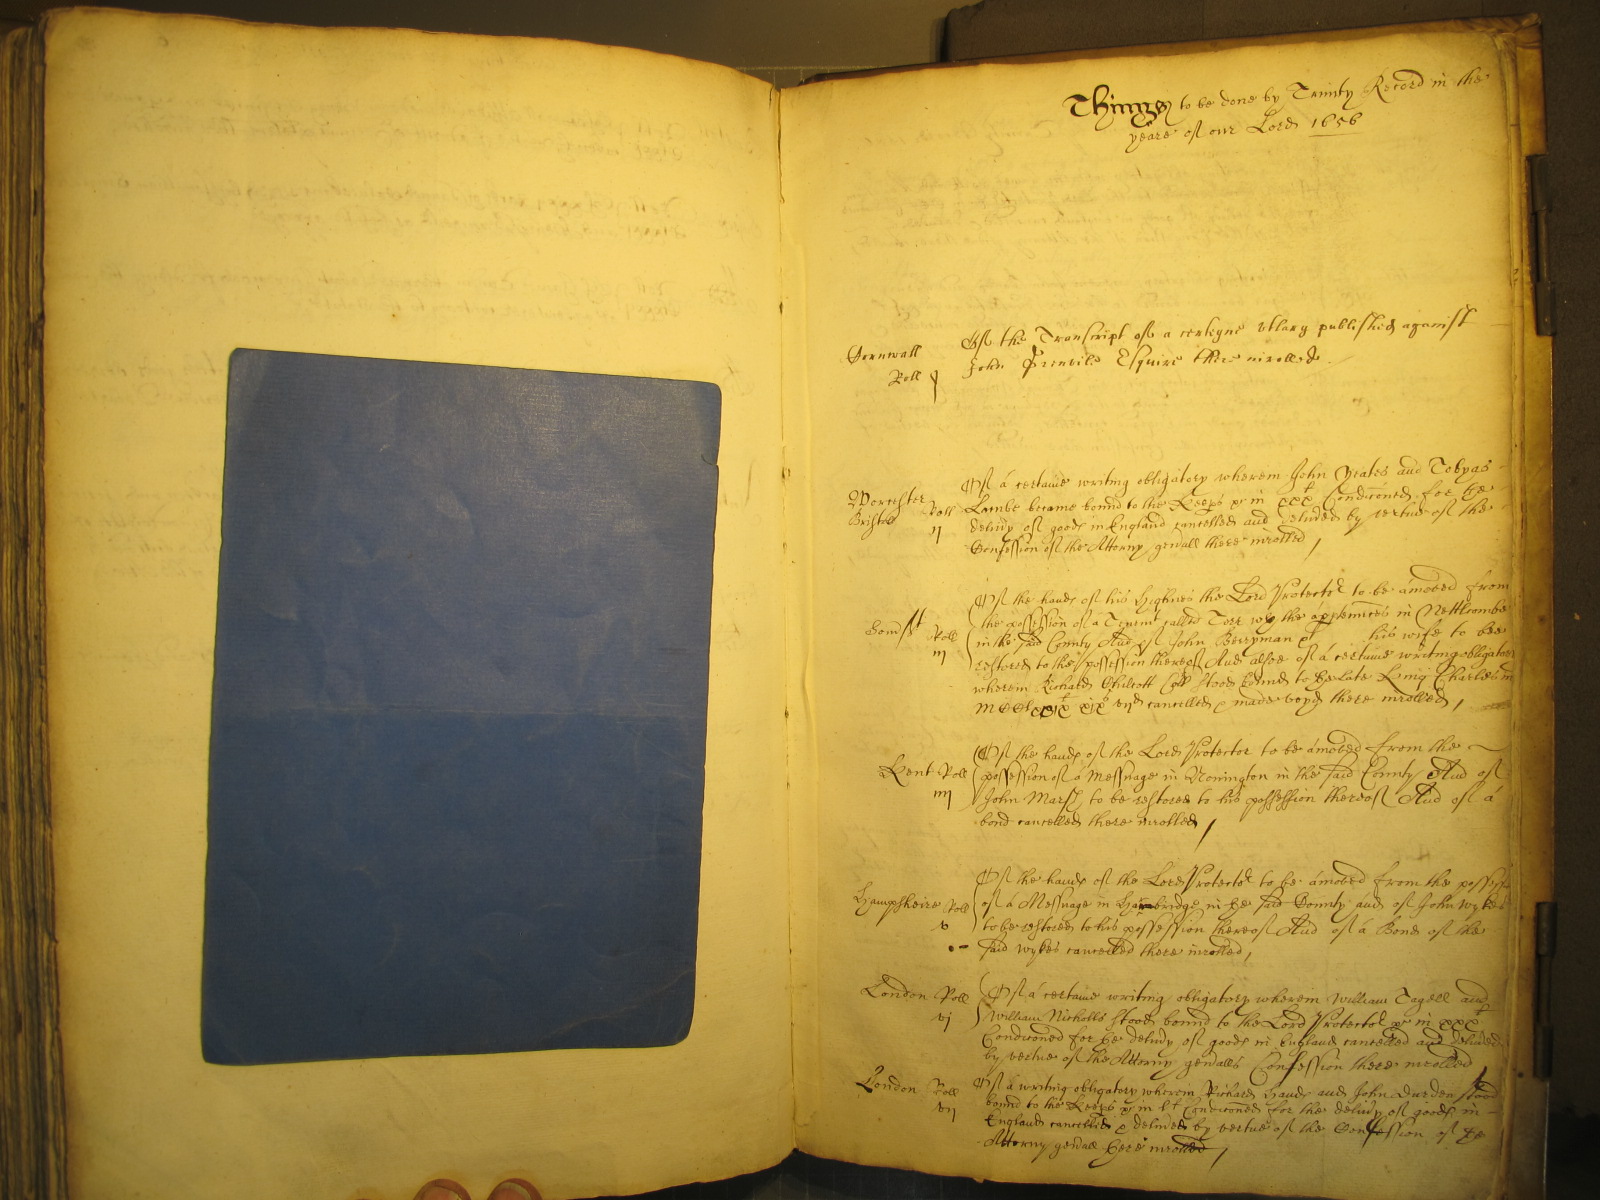 Things to be done by Trinity Record in the
yeare of our Lord 1656
Cornwall
Roll j
Of the Transcript of a certeyne utlary published against
John Grenvile Esquire there inrolled
Worcester
Bristoll Roll
ij
Of a certaine writing obligatory wherein John Yeates and Tobyas
Lambe became bound to the Keeps &c in xxx li Condiconed for the
delivy of goods in England cancelled and delivded by vertue of the
Confession of the Attorny gen'all there inrolled
Somst Roll
iij
Of the hands of his Highnes the Lord Protector to be amoved from
the possession of a Tenemt called Torr wth the apptennces in Nettlcombe
in the said County And of John Berryman & his wife to bee
restored to the possession thereof And alsoe of a certaine writing obligatory
wherein Richard Chilcott stood bound to the late King Charles in
cancelled & made voyd there inrolled
Kent Roll
iiij
Of the hands of the Lord Protector to be amoved from the
possession of a Messuage in Nonington in the said County And of
John Marsh to be restored to his possession thereof And of a
bond cancelled there inrolled
Hampsheire Roll
v
Of the hands of the Lord Protector to be amoved from the possession
of a Messuage in in the said County and of John Wykes
to be restored to his possession thereof And of a Bond of the
said Wykes cancelled there inrolled
London Roll
vj
Of a certaine writing obligatory wherein William Tagell and
William Nicholls stood bound to the Lord Protector &c in xxx li
Condiconed for the delivy of goods in England cancelled and delivded
by vertue of the Attorny gen'alls Confession there inrolled
London Roll
vij
Of a writing obligatory wherein Richard Hands and John Durden stood
bound to the Keeps &c in l li Condiconed for the delivy of goods in
England cancelled & delivded by vertue of the Confession of the
Attorny gen'all here inrolled